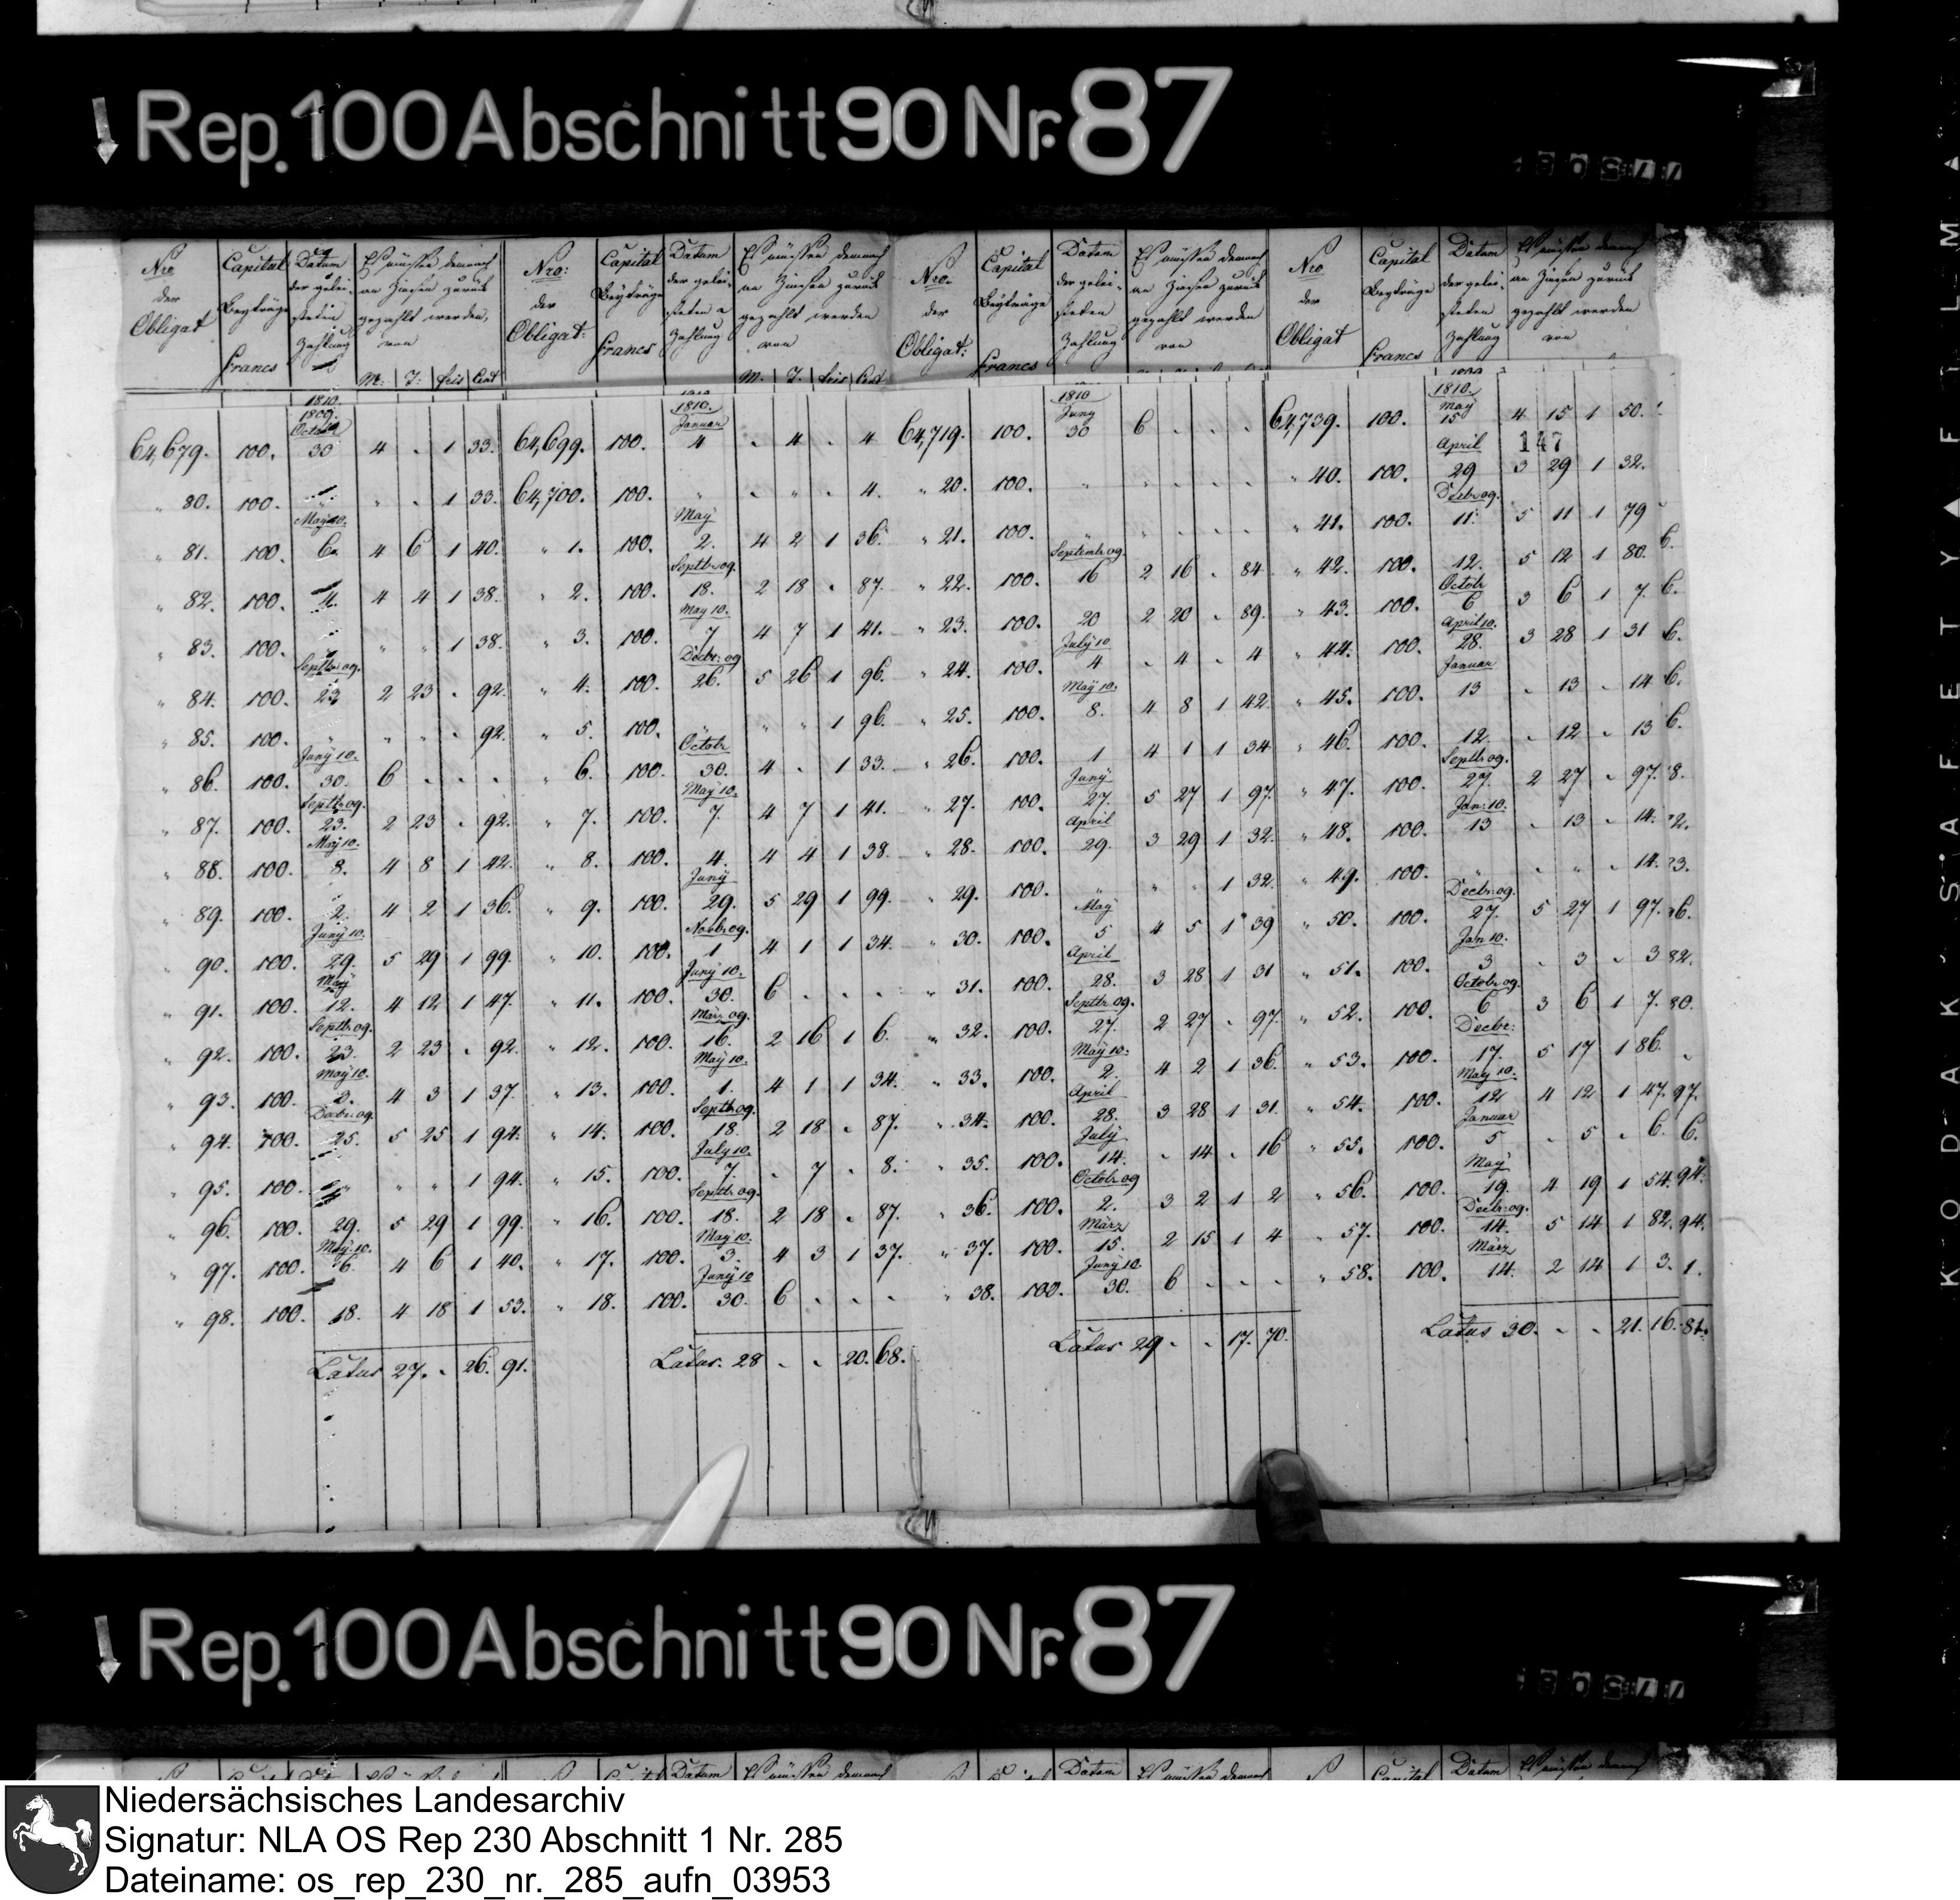 Rep. 100 Abschnitt 90 Nr. 87
Nro Capital Datum Es müssen demnach Nro: Capital Datum Es müssen demnach Nro. Capital Datum Es müssen demnach Nro Capital Datum Es müssen demnach
der Beyträge der gelei- an Zinsen zurück der Beyträge der gelei- an Zinsen zurück der Beyträge der gelei- an Zinsen zurück der Beyträge der gelei- an Zinsen zurück
Obligat steten gezahlt werden, Obligat: steten gezahlt werden Obligat: steten gezahlt werden Obligat steten gezahlt werden
Francs Zahlung von Francs Zahlung von Francs Zahlung von Francs Zahlung von
M: T: frcs Cent M. T. frcs Cent
1810. 1810. 1810 1810.
1809. Octob Januar Juny May
64,679. 100. 30 4 " 1 33. 64,699. 100. 4 " 4 " 4 64,719. 100. 30 6 " " " 64,739. 100. 15 4 15 1 50.
April 147
" 80. 100. " " " 1 33. 64,700. 100. " " " " 4. " 20. 100. " " " " " " 40. 100. 29 3 29 1 32.
May 10. May Decbr 09.
" 81. 100. 6. 4 6 1 40. " 1. 100. 2. 4 2 1 36. " 21. 100. " " " " " " 41. 100. 11. 5 11 1 79
Septbr 09. Septembr 09.
" 82. 100. 4. 4 4 1 38. " 2. 100. 18. 2 18 " 87. " 22. 100. 16 2 16 " 84 " 42. 100. 12. 5 12 1 80. 6.
May 10. Octob
" 83. 100. " " " 1 38. " 3. 100. 7 4 7 1 41. " 23. 100. 20 2 20 " 89. " 43. 100. 6 3 6 1 7. 6.
Septbr 09. Decbr: 09 July 10 April 10.
" 84. 100. 23 2 23 " 92. " 4. 100. 26. 5 26 1 96. " 24. 100. 4 " 4 " 4 " 44. 100. 28. 3 28 1 31 6.
May 10. Januar
" 85. 100. " " " " 92. " 5. 100. " " " 1 96. " 25. 100. 8. 4 8 1 42. " 45. 100. 13 " 13 " 14 6.
Juny 10. Octob
" 86. 100. 30. 6 " " " " 6. 100. 30. 4 " 1 33. " 26. 100. 1 4 1 1 34 " 46. 100. 12. " 12 " 13 6.
Septbr 09. May 10. Juny Septbr 09.
" 87. 100. 23. 2 23 " 92. " 7. 100. 7. 4 7 1 41. " 27. 100. 27. 5 27 1 97. " 47. 100. 27. 2 27 " 97. 8.
May 10. April Jan: 10.
" 88. 100. 8. 4 8 1 42. " 8. 100. 4. 4 4 1 38. " 28. 100. 29. 3 29 1 32. " 48. 100. 13 " 13 " 14. 2.
Juny
" 89. 100. 2. 4 2 1 36. " 9. 100. 29. 5 29 1 99. " 29. 100. " " " 1 32. " 49. 100. " " " " 14. 3.
Juny 10. Novbr 09. May Decbr: 09.
" 90. 100. 29. 5 29 1 99. " 10. 100. 1 4 1 1 34. " 30. 100. 5 4 5 1 39 " 50. 100. 27. 5 27 1 97. 6.
May Juny 10. April Jan 10.
" 91. 100. 12. 4 12 1 47. " 11. 100. 30. 6 " " " " 31. 100. 28. 3 28 1 31 " 51. 100. 3 " 3 " 3 82.
Septbr 09. März 09. Septbr 09. Octob 09.
" 92. 100. 23. 2 23 " 92. " 12. 100. 16. 2 16 1 6. " 32. 100. 27. 2 27 " 97. " 52. 100. 6 3 6 1 7. 80.
May 10. May 10. May 10. Decbr:
" 93. 100. 3. 4 3 1 37. " 13. 100. 1. 4 1 1 34. " 33. 100. 2. 4 2 1 36. " 53. 100. 17. 5 17 1 86.
Decbr 09. Septbr 09. April May 10.
" 94. 100. 25. 5 25 1 94. " 14. 100. 18. 2 18 " 87. " 34. 100. 28. 3 28 1 31. " 54. 100. 12. 4 12 1 47. 97.
July 10. July Januar
" 95. 100. " " " 1 94. " 15. 100. 7. " 7 " 8. " 35. 100. 14. " 14 " 16 " 55. 100. 5 " 5 " 6. 6.
Septbr 09. Octob 09 May
" 96. 100. 29. 5 29 1 99. " 16. 100. 18. 2 18 " 87. " 36. 100. 2. 3 2 1 2 " 56. 100. 19. 4 19 1 54. 94.
May 10. May 10. März Decbr: 09.
" 97. 100. 6. 4 6 1 40. " 17. 100. 3. 4 3 1 37. " 37. 100. 15. 2 15 1 4 " 57. 100. 14. 5 14 1 82. 94.
Juny 10 Juny 10 März
" 98. 100. 18. 4 18 1 53. " 18. 100. 30. 6 " " " " 38. 100. 30. 6 " " " " 58. 100. 14. 2 14 1 3. 1.
Latus 27. " 26. 91. Latus. 28 " " 20. 68. Latus 29 " " 17. 70. Latus 30. " " 21. 16. 81.
Rep. 100 Abschnitt 90 Nr. 87
KODAK SAFETY FILM
Niedersächsisches Landesarchiv
Signatur: NLA OS Rep 230 Abschnitt 1 Nr. 285
Dateiname: os_rep_230_nr._285_aufn_03953